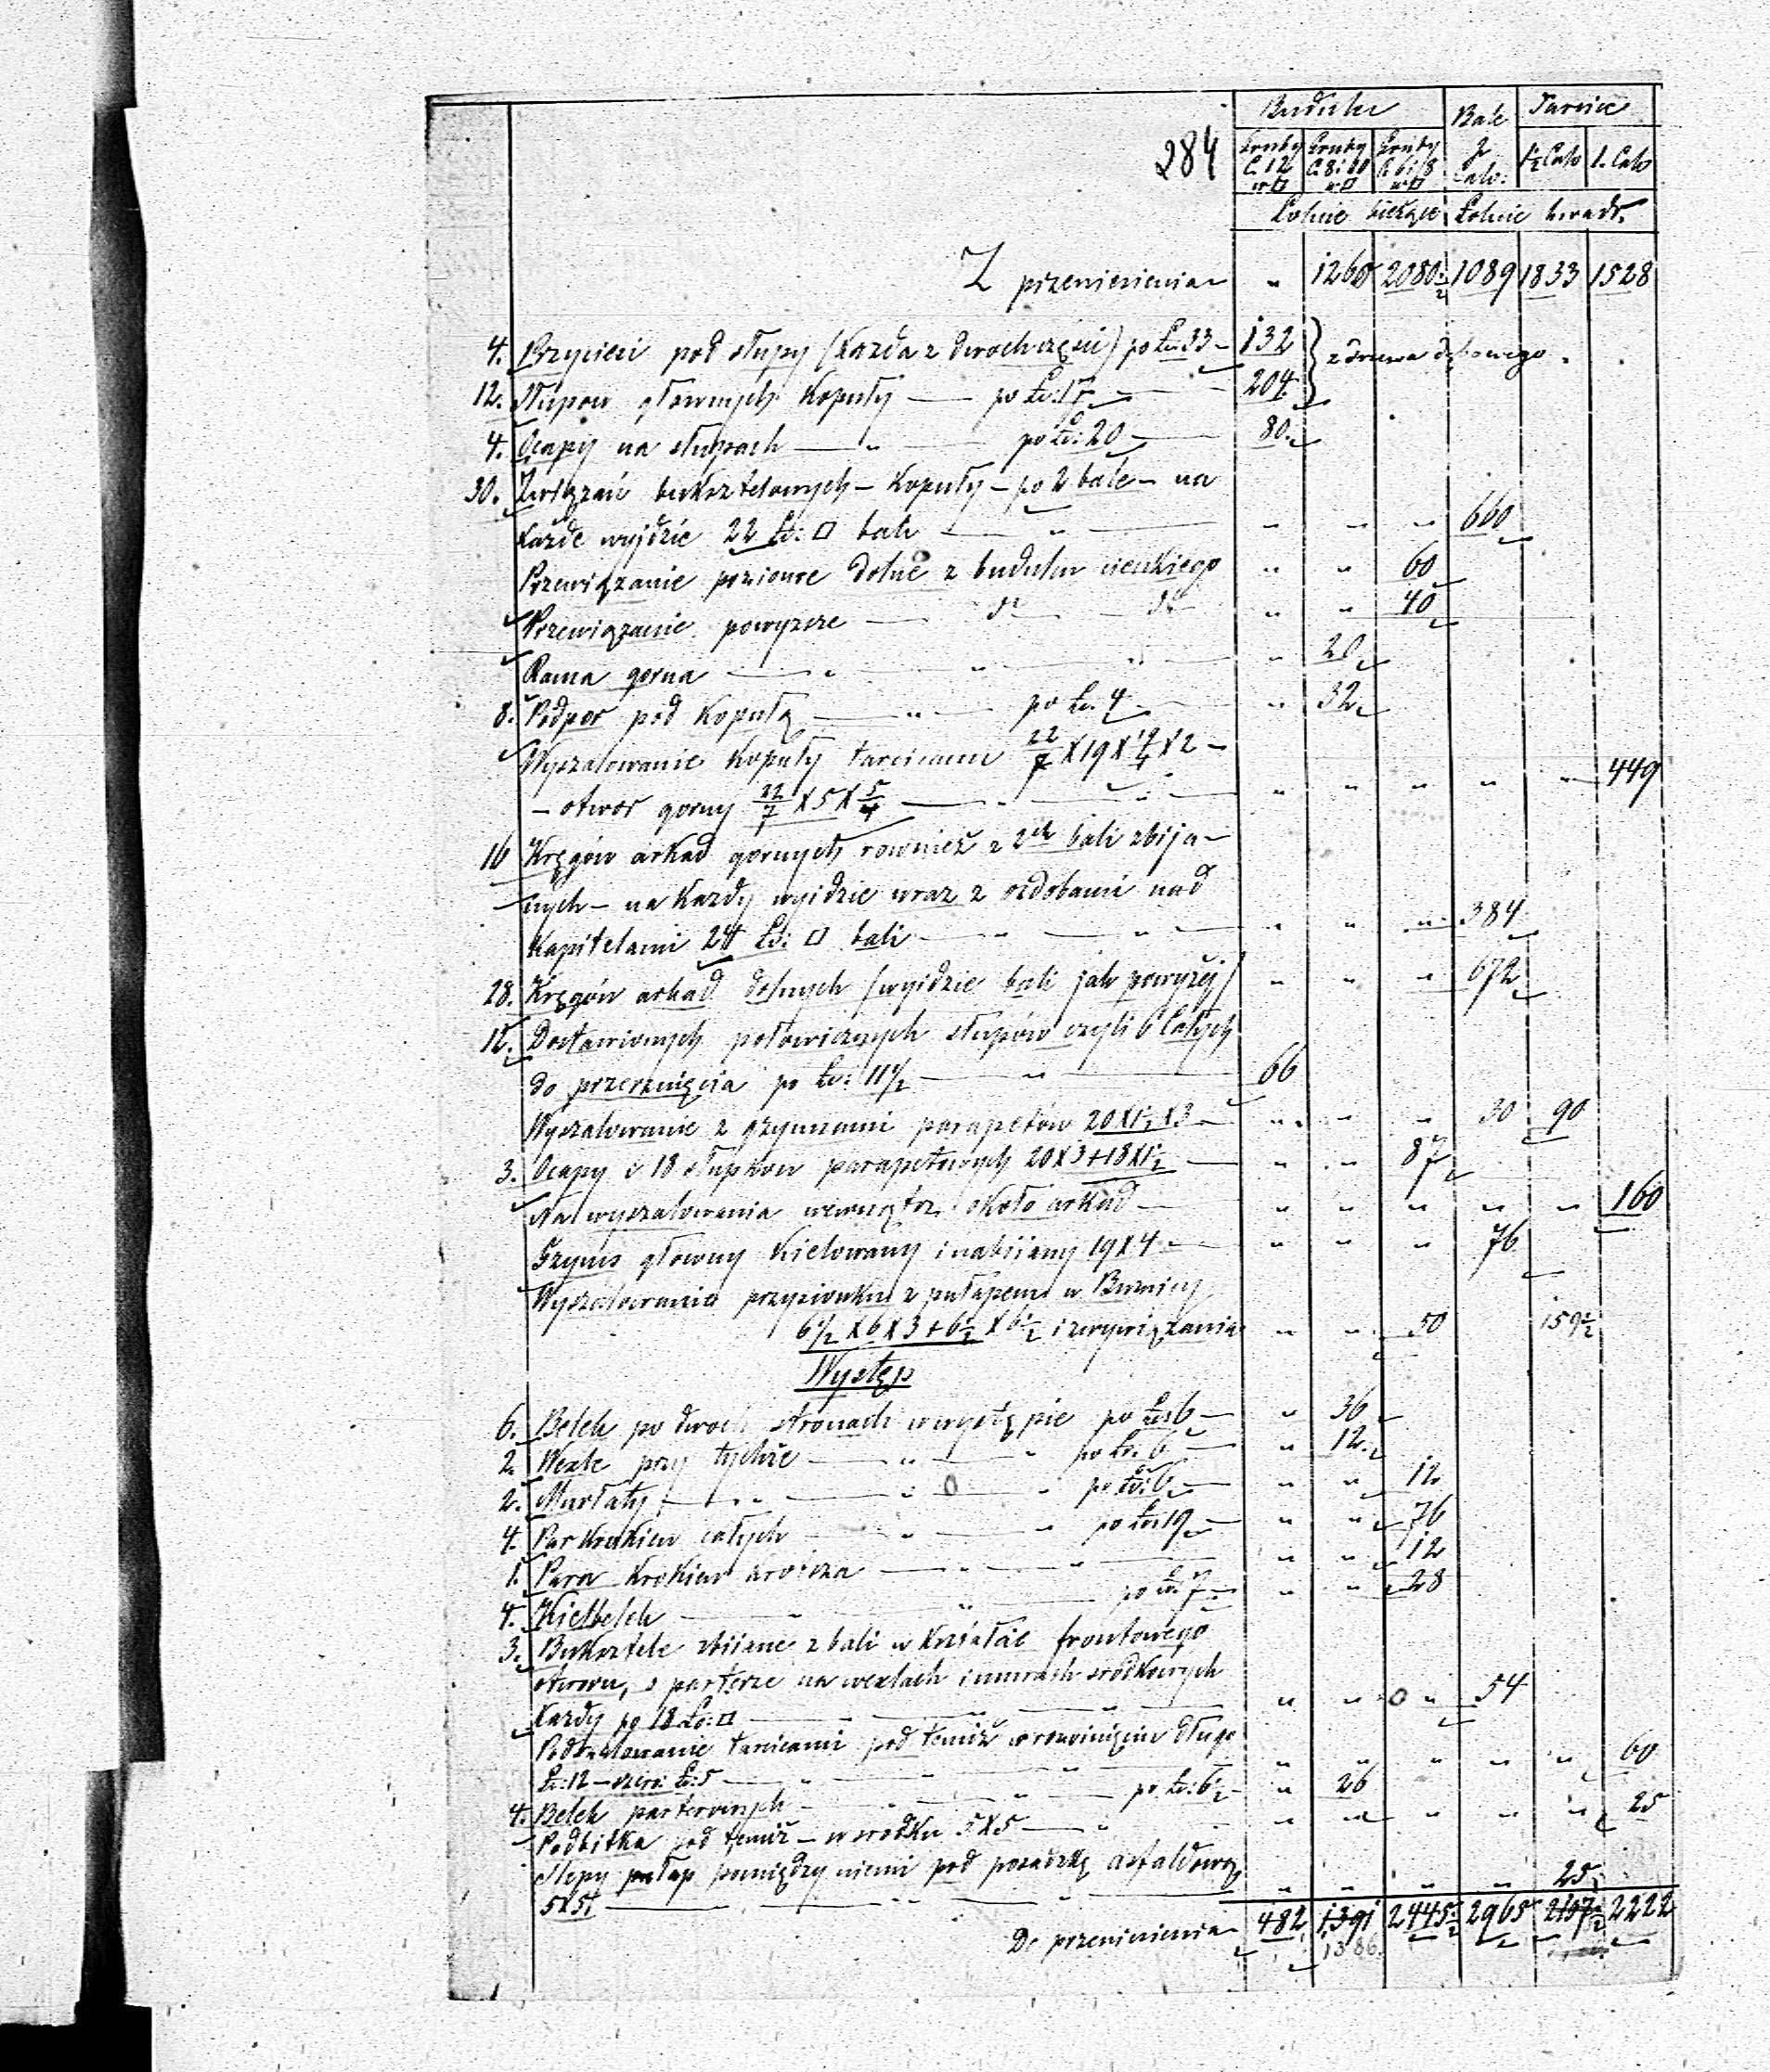 284
Budulec Bale Tarcice
Gruby C. 12 w □ Gruby C. 8 i 10 w □ Gruby C. 6 i 8 w □ 2 Calo: 1½ Calo 1. Calo
Łokcie bieżące Łokcie kwadr.
Z przeniesienia " 1260 2080½ 1089 1833 1528
4. Przycieś pod słupy (każda z dwoch części) po Łk: 33 — 132 } z drzewa dębowego
12. Słupow głownych kopuły — po Łk: 17 — 204
4. Ocapy na słupach — " — po Łk: 20 — 80.
30. Związań buksztelowych — kopuły — po 2 bale — na
każde wyjdzie 22 Łk: □ bali — " — " " " 660
Przewiązanie poziome dolne z budulcu cienkiego " " 60
Przewiązanie powyższe — dº — dº " " 40
Rama gorna — " — " — " — " 20
8. Podpor pod kopułą — " — po Łk. 4 — " 32.
Wyszalowanie kopuły tarcicami 22/7 X 19 X 19/4 X 2 —
— otwor gorny 22/7 X 5 X 5/4 — " — " " " " " 449
16 Kręgów arkad gornych rownież z 2ch bali zbija-
nych — na każdy wyidzie wraz z ozdobami nad
kapitelami 24 Łk: □ bali — " — " — " " " 384
28. Kręgów arkad dolnych (wyidzie bali jak powyżej) " " " 672
12. Dostawionych połowicznych słupów czyli 6 całych
do przerznięcia po Łk: 11½ — " — 66
Wyszalowanie z gzymsami parapetów 20 X 1½ X 3 — " " " 30 90
3. Ocapy i 18 słupkow parapetowych 20 X 3 + 18 X 1½ — " " 87
Na wyszalowania wewnątrz około arkad — " " " " " 160
Gzyms głowny kielowany i nabijany 19 X 4 — " " " 76
Wyszalowania przyzionku z pułapem w Buznicy
6½ X 6 X 3 + 6½ X 6½ i zwywiązania " " 50 159½
Występ
6. Belek po dwoch stronach w występie po Łk: 6 — " 36
2. Wexle przy tychże — " — po Łk. 6 — " 12.
2. Murłaty — " — " — po Łk: 6 — " " 12
4. Par krokiew całych — " — " po Łk: 19 — " " 76
1. Para krokiew krotsza — " — " — " " 12
4. Kielbelek — " — " — po Łk. 7 — " " 28
3. Buksztele zbijane z bali w kształcie frontowego
otworu, o parterze na wexlach i murach srodkowych
każdy po 18 Łk: □ — " — " — " " " 54
Podszalowanie tarcicami pod temiż w rozwinięciu długo
Łk: 12 — szero: Łk: 5 — " — " — " " " " " 60
4. Belek parterowych — " — " — po Łk: 6½ — " 26
Podbitka pod temiż — w srodku 5 X 5 — " " " " " " 25
Slepy pułap pomiędzy niemi pod posadzkę asfaldową
5 X 5 — " — " — " " " " 25
Do przeniesienia 482 1391 2445½ 2965 2107½ 2222
1386.